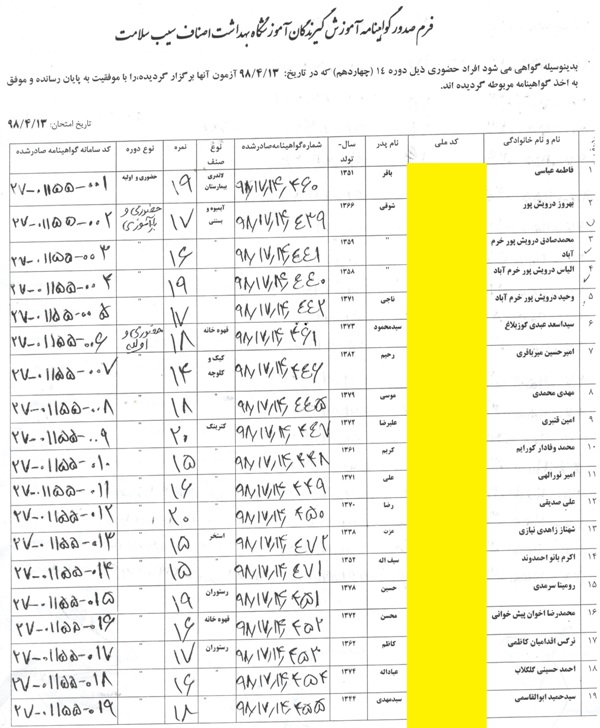 فرم صدور گواهینامه آموزش گیرندگان آموزشگاه بهداشت اصناف سیب سلامت
بدینوسیله گواهی می شود افراد حضوری ذیل دوره ۱۴ (چهاردهم) که در تاریخ: ۹۸/۴/۱۳ آزمون آنها برگزار گردیده،را با موفقیت به پایان رسانده و موفق
به اخذ گواهینامه مربوطه گردیده اند.
تاریخ امتحان: ۹۸/۴/۱۳
نام و نام خانوادگی کد ملی نام پدر سال- تولد شماره گواهینامه صادرشده نوع صنف نمره نوع دوره کد سامانه گواهینامه صادر شده
۱ فاطمه عباسی باقر ۱۳۵۱ ۹۸/۱۷/۱۴/۴۶۰ لاندری بیمارستان ۱۹ حضوری و اولیه ۲۷-۰۱۱۵۵-۰۰۱
۲ بهروز درویش پور شوقی ۱۳۶۶ ۹۸/۱۷/۱۴/۴۳۹ آبمیوه و بستنی ۱۷ حضوری و بازآموزی ۲۷-۰۱۱۵۵-۰۰۲
۳ محمدصادق درویش پور خرم آباد " ۱۳۵۹ ۹۸/۱۷/۱۴/۴۴۱ " ۱۶ " ۲۷-۰۱۱۵۵-۰۰۳
۴ الیاس درویش پور خرم آباد " ۱۳۵۸ ۹۸/۱۷/۱۴/۴۴۰ " ۱۹ " ۲۷-۰۱۱۵۵-۰۰۴
۵ وحید درویش پور خرم آباد ناجی ۱۳۷۱ ۹۸/۱۷/۱۴/۴۴۲ " ۱۷ " ۲۷-۰۱۱۵۵-۰۰۵
۶ سیداسعد عبدی کوزبلاغ سیدمحمود ۱۳۷۳ ۹۸/۱۷/۱۴/۴۶۱ قهوه خانه ۱۸ حضوری و اولیه ۲۷-۰۱۱۵۵-۰۰۶
۷ امیرحسین میرباقری رحیم ۱۳۸۲ ۹۸/۱۷/۱۴/۴۴۶ کیک و کلوچه ۱۴ " ۲۷-۰۱۱۵۵-۰۰۷
۸ مهدی محمدی موسی ۱۳۷۹ ۹۸/۱۷/۱۴/۴۴۵ " ۱۸ " ۲۷-۰۱۱۵۵-۰۰۸
۹ امین قنبری علیرضا ۱۳۷۲ ۹۸/۱۷/۱۴/۴۴۷ کترینگ ۲۰ " ۲۷-۰۱۱۵۵-۰۰۹
۱۰ محمد وفادار کورایم کریم ۱۳۶۱ ۹۸/۱۷/۱۴/۴۴۸ " ۱۵ " ۲۷-۰۱۱۵۵-۰۱۰
۱۱ امیر نورالهی علی ۱۳۷۱ ۹۸/۱۷/۱۴/۴۴۹ " ۱۶ " ۲۷-۰۱۱۵۵-۰۱۱
۱۲ علی صدیقی رضا ۱۳۷۰ ۹۸/۱۷/۱۴/۴۵۰ " ۲۰ " ۲۷-۰۱۱۵۵-۰۱۲
۱۳ شهناز زاهدی نیازی عزت ۱۳۳۸ ۹۸/۱۷/۱۴/۴۷۲ استخر ۱۵ " ۲۷-۰۱۱۵۵-۰۱۳
۱۴ اکرم بانو احمدوند سیف اله ۱۳۵۲ ۹۸/۱۷/۱۴/۴۷۱ " ۱۵ " ۲۷-۰۱۱۵۵-۰۱۴
۱۵ رومینا سرمدی حسین ۱۳۷۸ ۹۸/۱۷/۱۴/۴۵۱ رستوران ۱۹ " ۲۷-۰۱۱۵۵-۰۱۵
۱۶ محمدرضا اخوان پیش خوانی محسن ۱۳۷۲ ۹۸/۱۷/۱۴/۴۵۲ قهوه خانه ۱۶ " ۲۷-۰۱۱۵۵-۰۱۶
۱۷ نرگس اقدامیان کاظمی کاظم ۱۳۶۲ ۹۸/۱۷/۱۴/۴۵۳ رستوران ۱۷ " ۲۷-۰۱۱۵۵-۰۱۷
۱۸ احمد حسینی گلکلاب عباداله ۱۳۷۴ ۹۸/۱۷/۱۴/۴۵۴ " ۱۶ " ۲۷-۰۱۱۵۵-۰۱۸
۱۹ سیدحمید ابوالقاسمی سیدمهدی ۱۳۴۴ ۹۸/۱۷/۱۴/۴۵۵ " ۱۸ " ۲۷-۰۱۱۵۵-۰۱۹